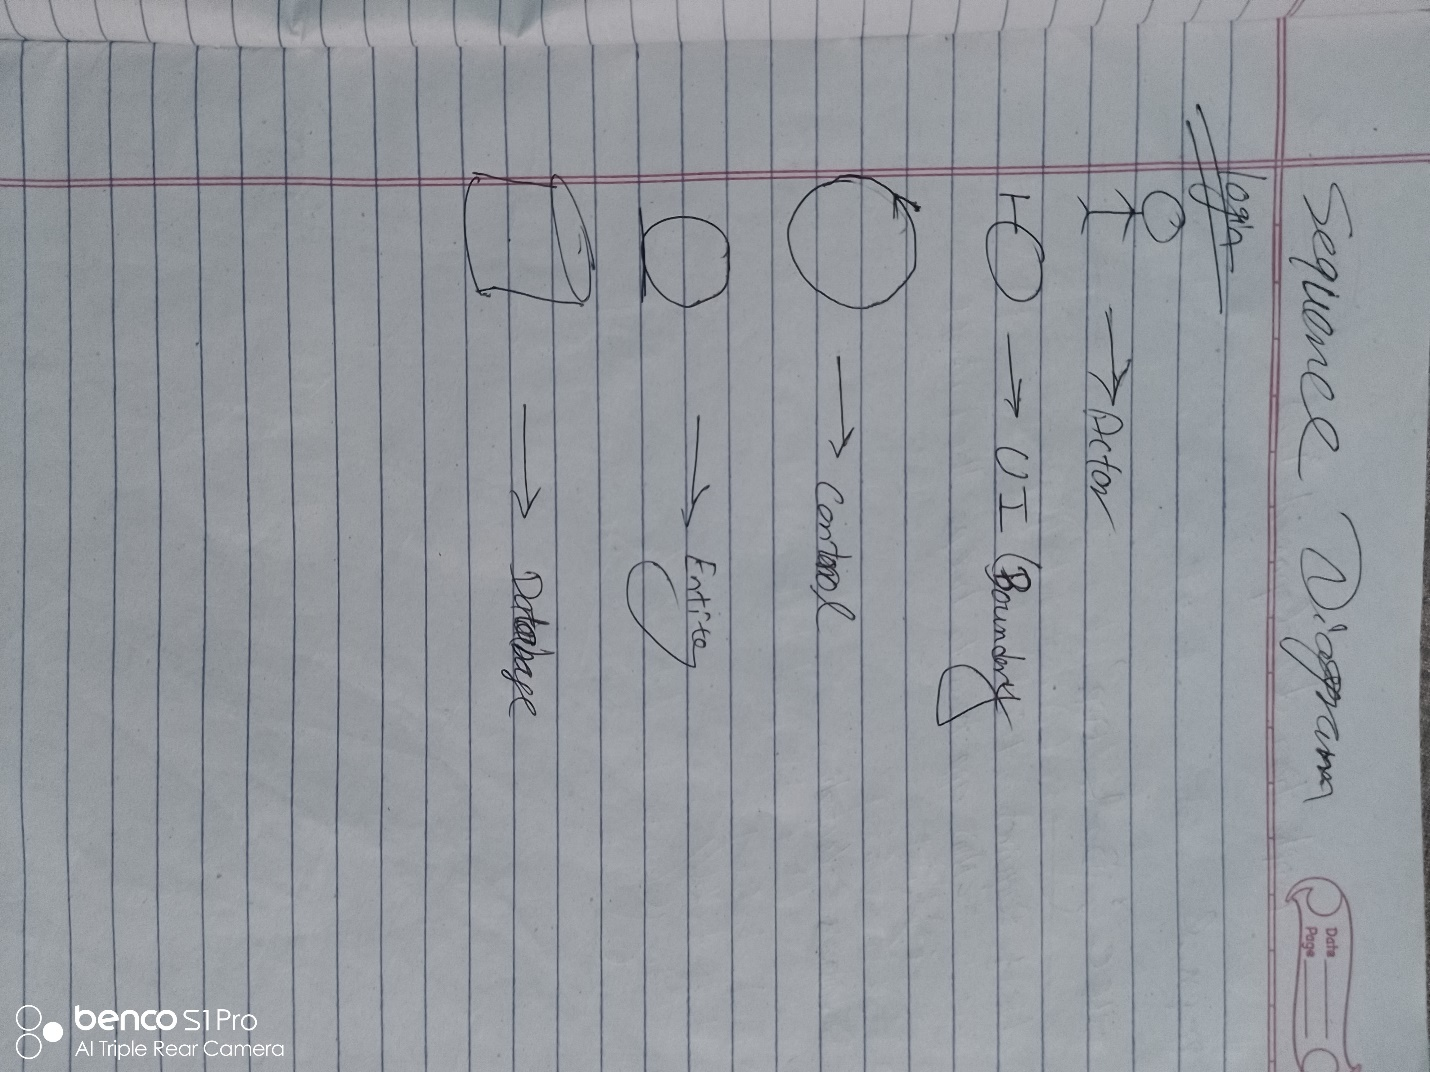 Sequence Diagram
Date
Page
Login
→ Actor
→ UI (Boundary
→ Control
→ Entity
→ Database
benco S1 Pro
AI Triple Rear Camera